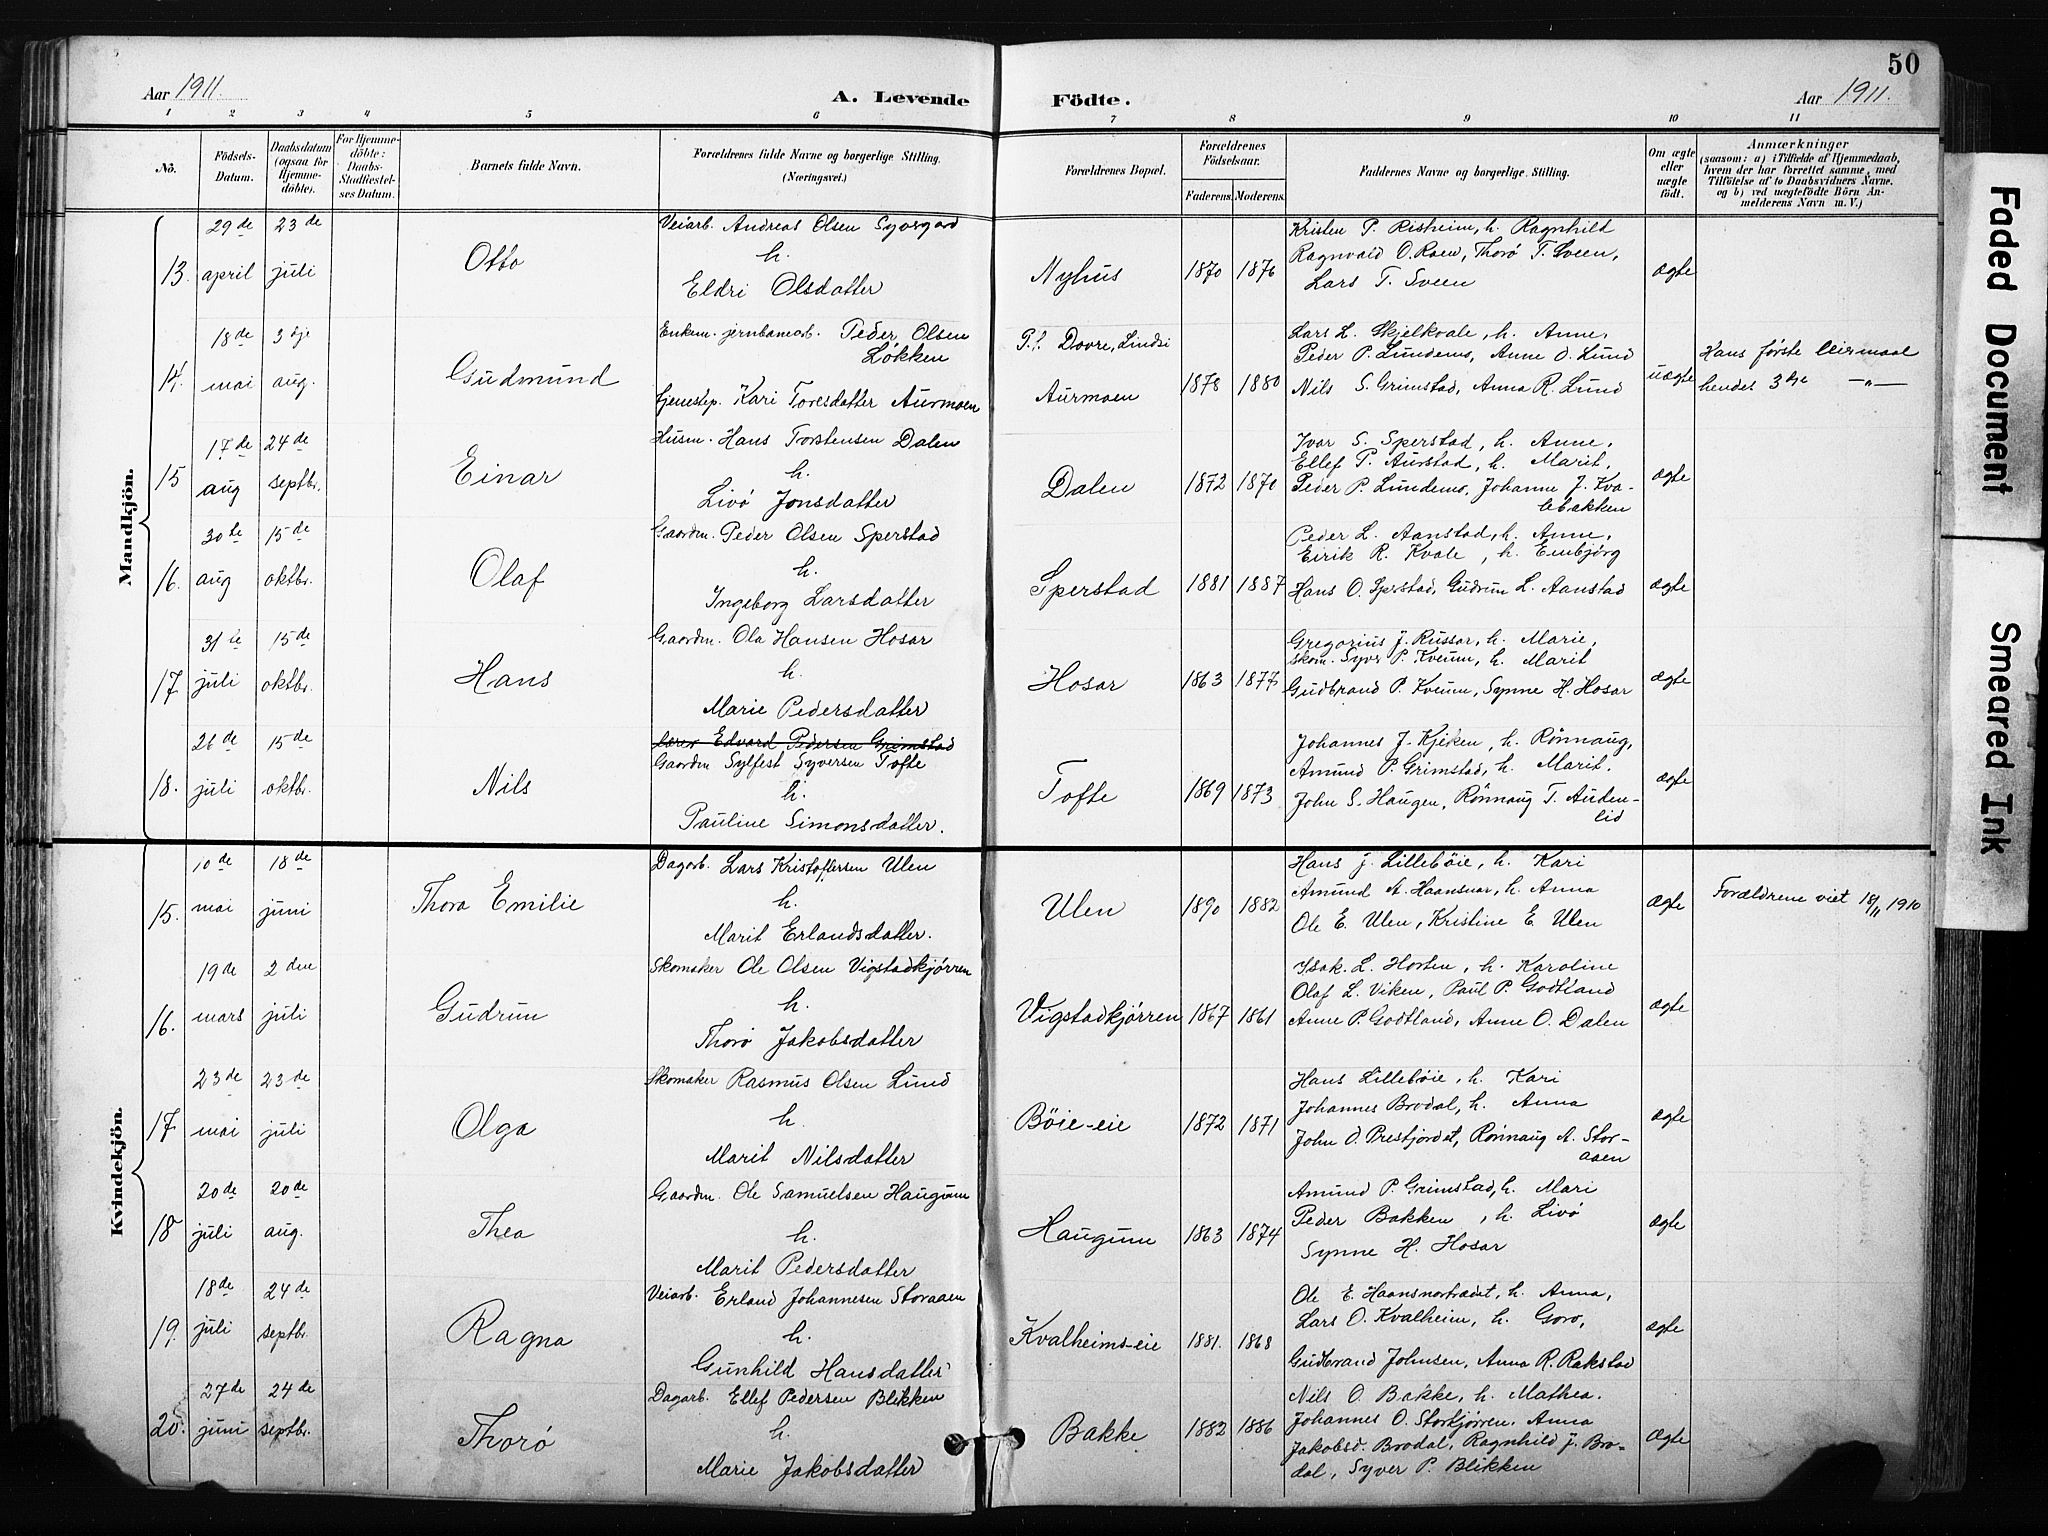 50
Aar 1911.
A. Levende Födte.
Aar 1911.
1 2 3 4 5 6 7 8 9 10 11
No.
Födsels-Datum.
Daabsdatum (ogsaa for Hjemme-döbte).
For Hjemme-döbte: Daabs-Stadfæstelses Datum.
Barnets fulde Navn.
Forældrenes fulde Navne og borgerlige Stilling. (Næringsvei.)
Forældrenes Bopæl.
Forældrenes Födselsaar.
Faderens. Moderens.
Faddernes Navne og borgerlige Stilling.
Om ægte eller uægte födt.
Anmærkninger
(saasom: a) i Tilfælde af Hjemmedaab, hvem der har forrettet samme, med Tilföielse af to Daabsvidners Navne. og b) ved uægtefödte Börn Anmelderens Navn m. V.)
Mandkjön.
13. 29de april 23de juli Otto
Veiarb. Andreas Olsen Syorgard
h.
Eldri Olsdatter
Nyhus 1870 1876
Kristen P. Risheim, h. Ragnhild
Ragnvald O. Roen, Thorø T. Sveen,
Lars T. Sveen
ægte
14. 18de mai 3dje aug. Gudmund
Enkem. jernbanearb. Peder Olsen
Løkken
tjenestep. Kari Toresdatter Aurmoen
P.t. Dovre, Lindsi
Aurmoen 1878 1880
Lars L. Skjelkvale, h. Anne,
Peder P. Lundemo, Anne O. Lund
Nils S. Grimstad, Anna R. Lund
uægte
Hans første leiermaal
hendes 3die —"—
15 17de aug 24de septbr. Einar
Husm. Hans Torstensen Dalen
h.
Livø Jonsdatter
Dalen 1872 1870
Ivar S. Sperstad, h. Anne,
Ellef P. Aurstad, h. Marit,
Peder P. Lundemo, Johanne J. Kva-
lebakken
ægte
16. 30te aug 15de oktbr. Olaf
Gaardm. Peder Olsen Sperstad
h.
Ingeborg Larsdatter
Sperstad 1881 1887
Peder L. Aanstad, h. Anne,
Eirik R. Kvale, h. Embjørg
Hans O. Sperstad, Gudrun L. Aanstad
ægte
17. 31te juli 15de oktbr. Hans
Gaardm. Ola Hansen Hosar
h.
Marie Pedersdatter
Hosar 1863 1877
Gregorius J. Russar, h. Marie,
skom. Syver P. Kveum, h. Marit
Gudbrand P. Kveum, Synne H. Hosar
ægte
18. 26de juli 15de oktbr. Nils
lærer Edvard Pedersen Grimstad
Gaardm Sylfest Syversen Tofte
h.
Pauline Simonsdatter.
Tofte 1869 1873
Johannes J. Kjeken, h. Rønnaug,
Amund P. Grimstad, h. Marit.
John S. Haugen, Rønnaug T. Auden-
lid
ægte
Kvindekjön.
15. 10de mai 18de juni Thora Emilie
Dagarb. Lars Kristoffersen Ulen
h.
Marit Erlandsdatter.
Ulen 1890 1882
Hans J. Lillebøie, h. Kari
Amund A. Haansnar, h. Anna
Ole E. Ulen, Kristine E. Ulen
ægte
Forældrene viet 18/11 1910
16. 19de mars 2den juli Gudrun
Skomaker Ole Olsen Vigstadkjørren
h.
Thorø Jakobsdatter
Vigstadkjørren 1867 1861
Isak. L. Horten, h. Karoline
Olaf L. Viken, Paul P. Godtland
Anne P. Godtland, Anne O. Dalen
ægte
17 23de mai 23de juli Olga
Skomaker Rasmus Olsen Lund
h.
Marit Nilsdatter
Bøie-eie 1872 1871
Hans Lillebøie, h. Kari
Johannes Brodal, h. Anna
John O. Prestjordet, Rønnaug A. Stor-
aaen
ægte
18 20de juli 20de aug. Thea
Gaardm. Ole Samuelsen Haugum
h.
Marit Pedersdatter
Haugum 1863 1874
Amund P. Grimstad, h. Mari
Peder Bakken, h. Livø
Synne H. Hosar
ægte
19. 18de juli 24de septbr. Ragna
Veiarb. Erland Johannesen Storaaen
h.
Gunhild Hansdatter
Kvalheims-eie 1881. 1868
Ole E. Haansnortrædet, h. Anna,
Lars O. Kvalheim, h. Goro,
Gudbrand Johnsen, Anna R. Rakstad
ægte
20. 27de juni 24de septbr. Thorø
Dagarb. Ellef Pedersen Blikken
h.
Marie Jakobsdatter
Bakke 1882 1886
Nils O. Bakke, h. Mathea.
Johannes O. Storkjørren, Anna
Jakobsd. Brodal, Ragnhild J. Bro-
dal, Syver P. Blikken
Ægte
Faded Document
Smeared Ink